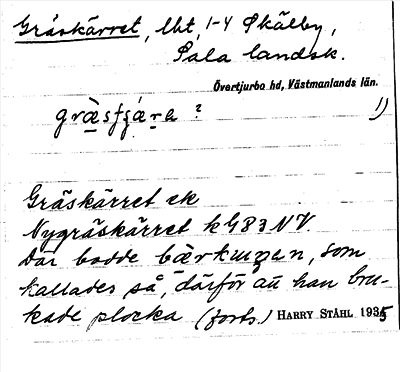 Gräskärret, lht, 1-4 Skälby,
Sala landsk.
Övertjurbo hd, Västmanlands län.
græ̀sʃɟá ṛa ? 1)
Gräskärret ek
Nygräskärret kG83NV.
Där bodde bärkungen, som
kallades så, därför att han bru-
kade plocka (forts.) HARRY STÅHL 1935